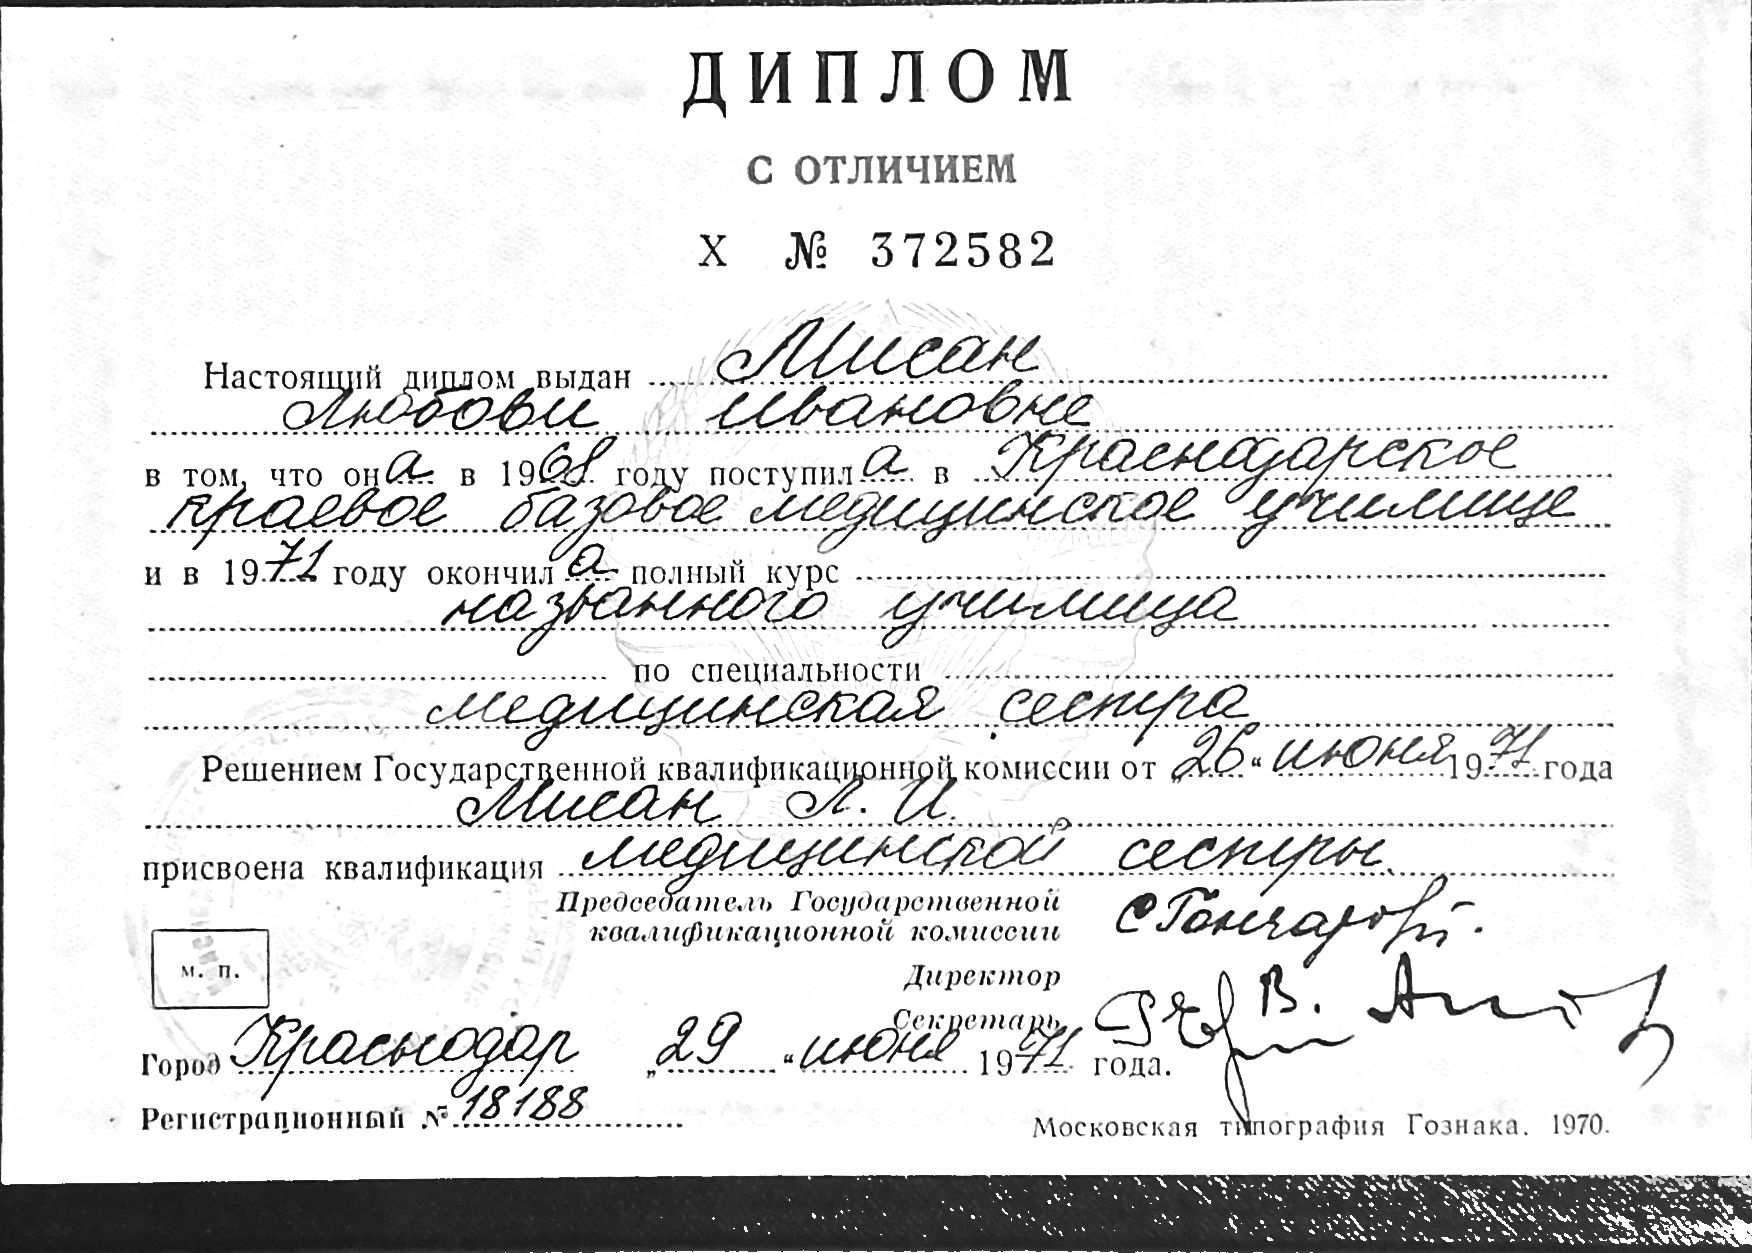 ДИПЛОМ
С ОТЛИЧИЕМ
X № 372582
Настоящий диплом выдан Мисан
Любови Ивановне
в том, что она в 1968 году поступила в Краснодарское
краевое базовое медицинское училище
и в 1971 году окончила полный курс
названного училища
по специальности
медицинская сестра
Решением Государственной квалификационной комиссии от „26“ июня 1971 года
Мисан Л. И.
присвоена квалификация медицинской сестры
Председатель Государственной
квалификационной комиссии
м. п.
Директор
Секретарь
Город Краснодар „29“ июня 1971 года.
Регистрационный № 18188
Московская типография Гознака. 1970.